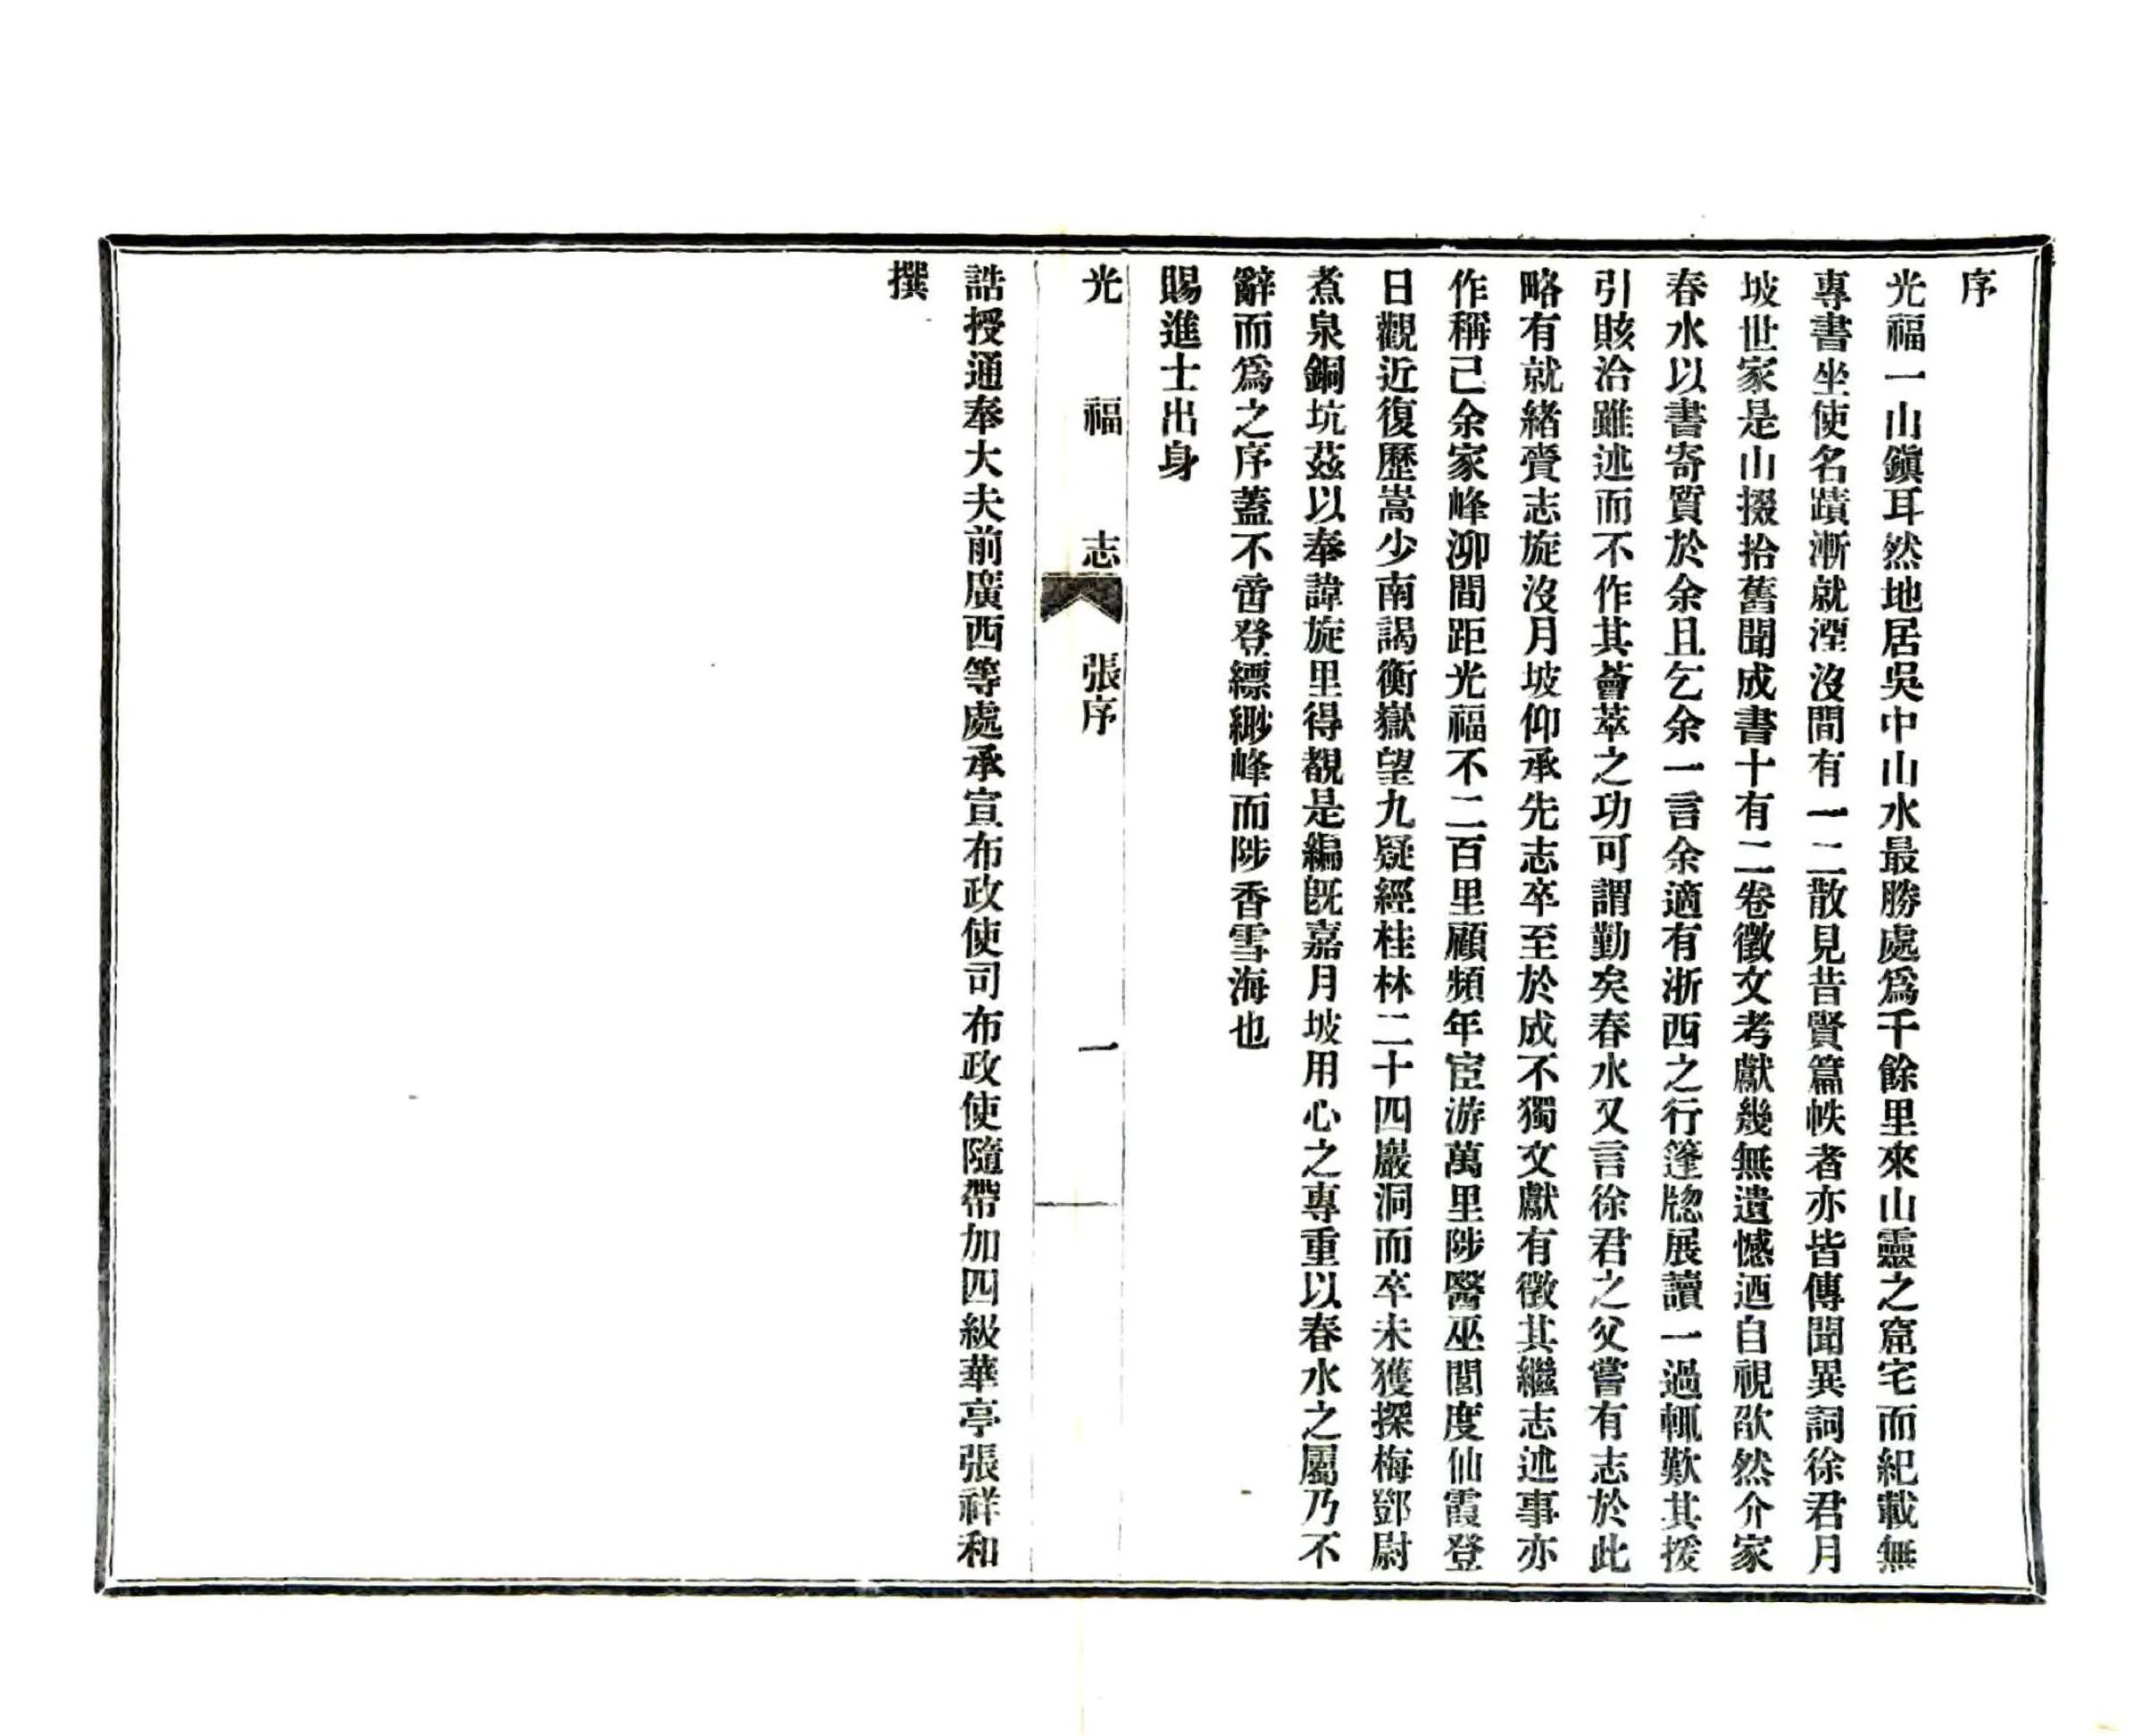 序
光福一山鎭耳然地居吳中山水最勝處爲千餘里來山靈之窟宅而紀載無
專書坐使名蹟漸就湮沒間有一二散見昔賢篇帙者亦皆傳聞異詞徐君月
坡世家是山掇拾舊聞成書十有二卷徵文考獻幾無遺憾迺自視欿然介家
春水以書寄質於余且乞余一言余適有浙西之行篷牕展讀一過輒歎其援
引賅洽雖述而不作其薈萃之功可謂勤矣春水又言徐君之父嘗有志於此
略有就緒賫志旋沒月坡仰承先志卒至於成不獨文獻有徵其繼志述事亦
作稱已余家峰泖間距光福不二百里顧頻年宦游萬里陟醫巫閭度仙霞登
日觀近復歷嵩少南謁衡嶽望九疑經桂林二十四巖洞而卒未獲探梅鄧尉
煮泉銅坑茲以奉諱旋里得覩是編既嘉月坡用心之專重以春水之屬乃不
辭而爲之序蓋不啻登縹緲峰而陟香雪海也
賜進士出身
光福志 張序 一
誥授通奉大夫前廣西等處承宣布政使司布政使隨帶加四級華亭張祥和
撰